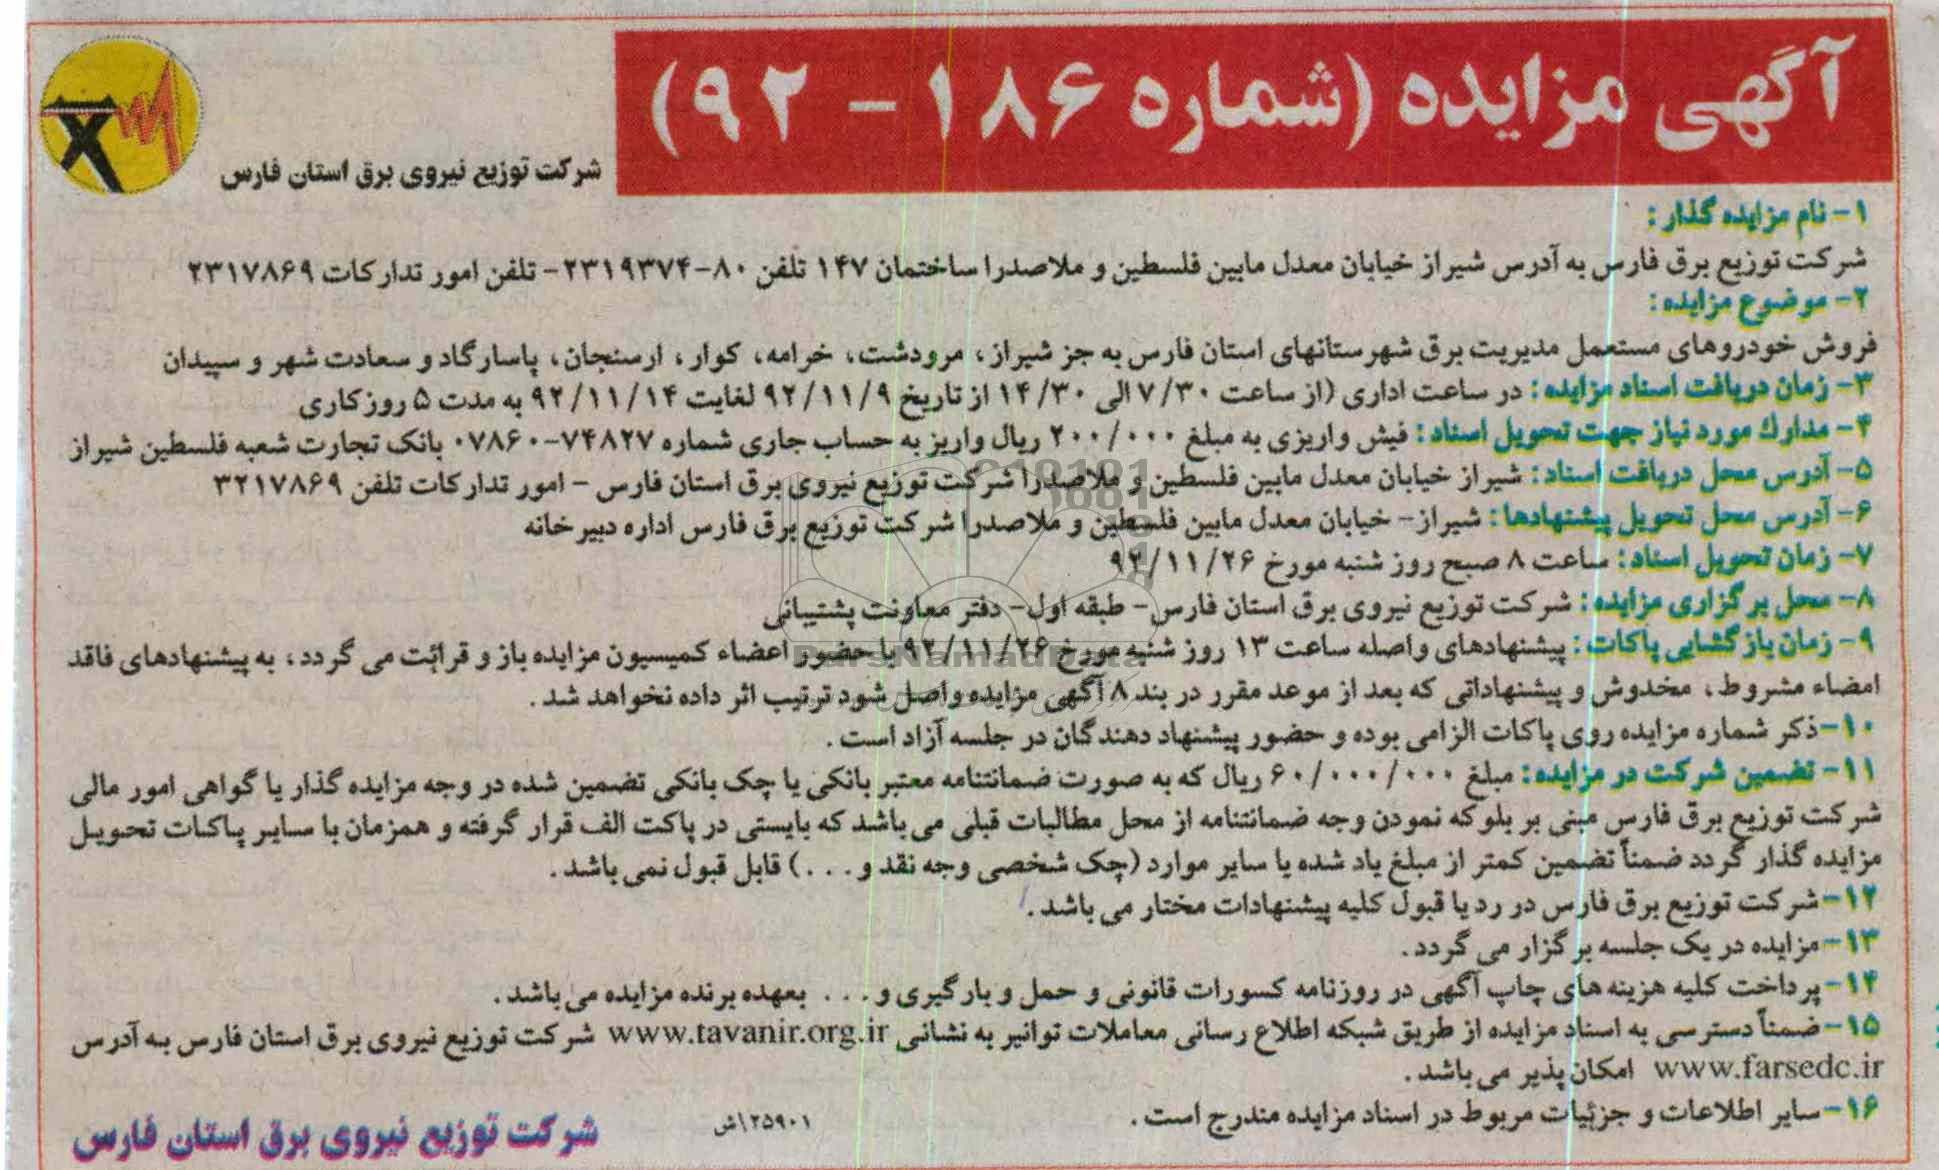 آگهی مزایده (شماره ۱۸۶ - ۹۲)
شرکت توزیع نیروی برق استان فارس
۱- نام مزایده گذار:
شرکت توزیع برق فارس به آدرس شیراز خیابان معدل مابین فلسطین و ملاصدرا ساختمان ۱۴۷ تلفن ۸۰-۲۳۱۹۳۷۴- تلفن امور تدارکات ۲۳۱۷۸۶۹
۲- موضوع مزایده:
فروش خودروهای مستعمل مدیریت برق شهرستانهای استان فارس به جز شیراز، مرودشت، خرامه، کوار، ارسنجان، پاسارگاد و سعادت شهر و سپیدان
۳- زمان دریافت اسناد مزایده: در ساعت اداری (از ساعت ۷/۳۰ الی ۱۴/۳۰ از تاریخ ۹۲/۱۱/۹ لغایت ۹۲/۱۱/۱۴ به مدت ۵ روز کاری
۴- مدارک مورد نیاز جهت تحویل اسناد: فیش واریزی به مبلغ ۲۰۰/۰۰۰ ریال واریز به حساب جاری شماره ۷۴۸۲۷-۰۷۸۶۰ بانک تجارت شعبه فلسطین شیراز
۵- آدرس محل دریافت اسناد: شیراز خیابان معدل مابین فلسطین و ملاصدرا شرکت توزیع نیروی برق استان فارس - امور تدارکات تلفن ۳۲۱۷۸۶۹
۶- آدرس محل تحویل پیشنهادها: شیراز- خیابان معدل مابین فلسطین و ملاصدرا شرکت توزیع برق فارس اداره دبیرخانه
۷- زمان تحویل اسناد: ساعت ۸ صبح روز شنبه مورخ ۹۲/۱۱/۲۶
۸- محل برگزاری مزایده: شرکت توزیع نیروی برق استان فارس- طبقه اول- دفتر معاونت پشتیبانی
۹- زمان بازگشایی پاکات: پیشنهادهای واصله ساعت ۱۳ روز شنبه مورخ ۹۲/۱۱/۲۶ با حضور اعضاء کمیسیون مزایده باز و قرائت می گردد، به پیشنهادهای فاقد
امضاء مشروط، مخدوش و پیشنهاداتی که بعد از موعد مقرر در بند ۸ آگهی مزایده واصل شود ترتیب اثر داده نخواهد شد.
۱۰-ذکر شماره مزایده روی پاکات الزامی بوده و حضور پیشنهاد دهندگان در جلسه آزاد است.
۱۱- تضمین شرکت در مزایده: مبلغ ۶۰/۰۰۰/۰۰۰ ریال که به صورت ضمانتنامه معتبر بانکی یا چک بانکی تضمین شده در وجه مزایده گذار یا گواهی امور مالی
شرکت توزیع برق فارس مبنی بر بلوکه نمودن وجه ضمانتنامه از محل مطالبات قبلی می باشد که بایستی در پاکت الف قرار گرفته و همزمان با سایر پاکات تحویل
مزایده گذار گردد ضمناً تضمین کمتر از مبلغ یاد شده یا سایر موارد (چک شخصی وجه نقد و...) قابل قبول نمی باشد.
۱۲-شرکت توزیع برق فارس در رد یا قبول کلیه پیشنهادات مختار می باشد.
۱۳-مزایده در یک جلسه برگزار می گردد.
۱۴-پرداخت کلیه هزینه های چاپ آگهی در روزنامه کسورات قانونی و حمل و بارگیری و... بعهده برنده مزایده می باشد.
۱۵-ضمناً دسترسی به اسناد مزایده از طریق شبکه اطلاع رسانی معاملات توانیر به نشانی www.tavanir.org.ir شرکت توزیع نیروی برق استان فارس به آدرس
www.farsedc.ir امکان پذیر می باشد.
۱۶-سایر اطلاعات و جزئیات مربوط در اسناد مزایده مندرج است.
۲۵۹۰۱\ش
شرکت توزیع نیروی برق استان فارس
ParsNamadData